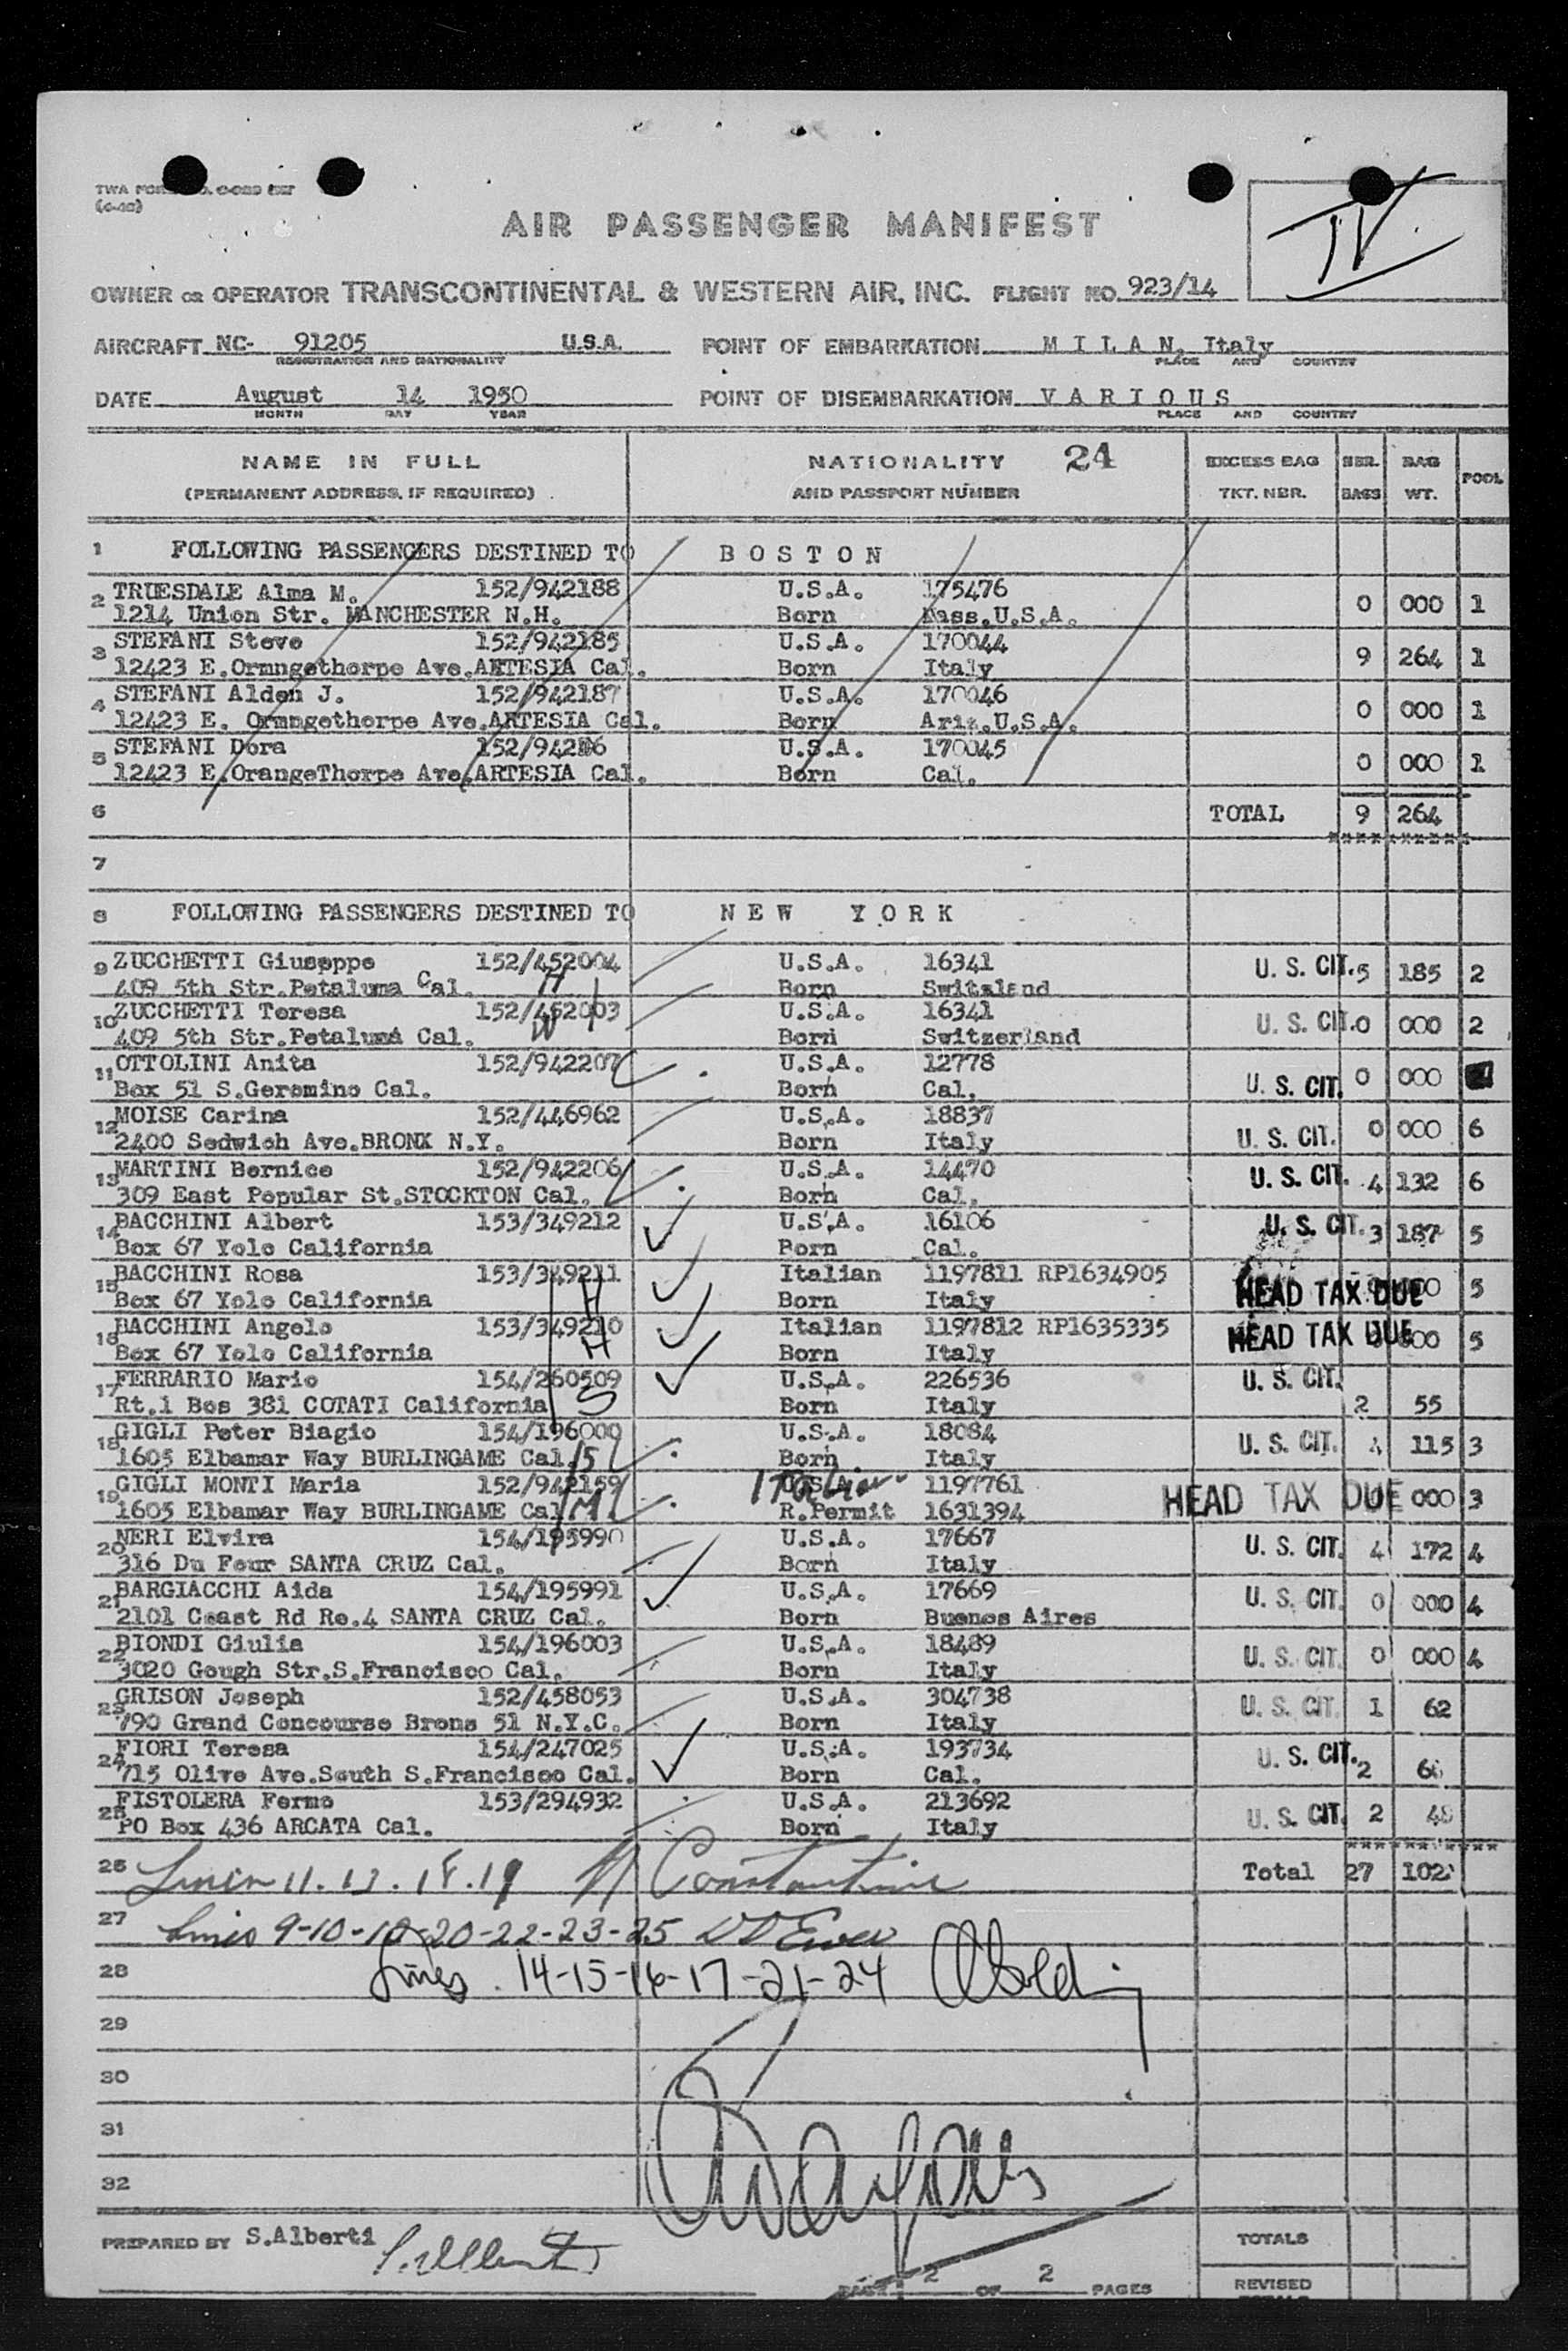 AIR PASSENGER MANIFEST
OWNER OR OPERATOR TRANSCONTINENTAL & WESTERN AIR, INC. FLIGHT NO. 923/14
AIRCRAFT NC- 91205 U.S.A. POINT OF EMBARKATION M I L A N, Italy
REGISTRATION AND NATIONALITY PLACE AND COUNTRY
DATE August 14 1950 POINT OF DISEMBARKATION V A R I O U S
MONTH DAY YEAR PLACE AND COUNTRY
NAME IN FULL NATIONALITY 24 EXCESS BAG NBR. BAG POOL
(PERMANENT ADDRESS, IF REQUIRED) AND PASSPORT NUMBER TKT. NBR. BAGS WT.
1 FOLLOWING PASSENGERS DESTINED TO B O S T O N
2 TRUESDALE Alma M. 152/942188 U.S.A. 175476 0 000 1
1214 Union Str. MANCHESTER N.H. Born Mass.U.S.A.
3 STEFANI Steve 152/942185 U.S.A. 170044 9 264 1
12423 E.Ormngethorpe Ave.ARTESIA Cal. Born Italy
4 STEFANI Alden J. 152/942187 U.S.A. 170046 0 000 1
12423 E. Ormngethorpe Ave.ARTESIA Cal. Born Ariz.U.S.A.
5 STEFANI Dora U.S.A. 170045 0 000 1
12423 E.OrangeThorpe Ave.ARTESIA Cal. Born Cal.
6 TOTAL 9 264
7
8 FOLLOWING PASSENGERS DESTINED TO N E W Y O R K
9 ZUCCHETTI Giuseppe 152/452004 U.S.A. 16341 U. S. CIT. 5 185 2
409 5th Str.Petaluma Cal. H Born Switzland
10 ZUCCHETTI Teresa 152/452003 U.S.A. 16341 U. S. CIT. 0 000 2
409 5th Str.Petaluma Cal. W Born Switzerland
11 OTTOLINI Anita 152/942207 U.S.A. 12778 U. S. CIT. 0 000
Box 51 S.Geromino Cal. Born Cal.
12 MOISE Carina 152/446962 U.S.A. 18837 U. S. CIT. 0 000 6
2400 Sedwich Ave.BRONX N.Y. Born Italy
13 MARTINI Bernice 152/942206 U.S.A. 14470 U. S. CIT. 4 132 6
309 East Popular St.STOCKTON Cal. Born Cal.
14 BACCHINI Albert 153/349212 U.S.A. 16106 U. S. CIT. 3 187 5
Box 67 Yolo California Born Cal.
15 BACCHINI Rosa 153/349211 Italian 1197811 RP1634905 HEAD TAX DUE 5
Box 67 Yolo California H Born Italy
16 BACCHINI Angelo 153/349210 Italian 1197812 RP1635335 HEAD TAX DUE 5
Box 67 Yolo California H Born Italy
17 FERRARIO Mario 154/260509 U.S.A. 226536 U. S. CIT. 2 55
Rt.1 Bos 381 COTATI California S Born Italy
18 GIGLI Peter Biagio 154/196000 U.S.A. 18084 U. S. CIT. 4 115 3
1605 Elbamar Way BURLINGAME Cal. S Born Italy
19 GIGLI MONTI Maria 152/942159 Italian 1197761 HEAD TAX DUE 000 3
1605 Elbamar Way BURLINGAME Cal M R.Permit 1631394
20 NERI Elvira 154/195990 U.S.A. 17667 U. S. CIT. 4 172 4
316 Du Four SANTA CRUZ Cal. Born Italy
21 BARGIACCHI Aida 154/195991 U.S.A. 17669 U. S. CIT. 0 000 4
2101 Coast Rd Ro.4 SANTA CRUZ Cal. Born Buenos Aires
22 BIONDI Giulia 154/196003 U.S.A. 18489 U. S. CIT. 0 000 4
3020 Gough Str.S.Francisco Cal. Born Italy
23 GRISON Joseph 152/458053 U.S.A. 304738 U. S. CIT. 1 62
790 Grand Concourse Brons 51 N.Y.C. Born Italy
24 FIORI Teresa 154/247025 U.S.A. 193734 U. S. CIT. 2
715 Olive Ave.South S.Francisco Cal. Born Cal.
25 FISTOLERA Fermo 153/294932 U.S.A. 213692 U. S. CIT. 2 48
PO Box 436 ARCATA Cal. Born Italy
26 11. 13. 18. 19 Constantine Total 27
27 Lines 9-10-12-20-22-23-25
28 Lines 14-15-16-17-21-24
29
30
31
32
PREPARED BY S.Alberti TOTALS
PAGE 2 OF 2 PAGES REVISED